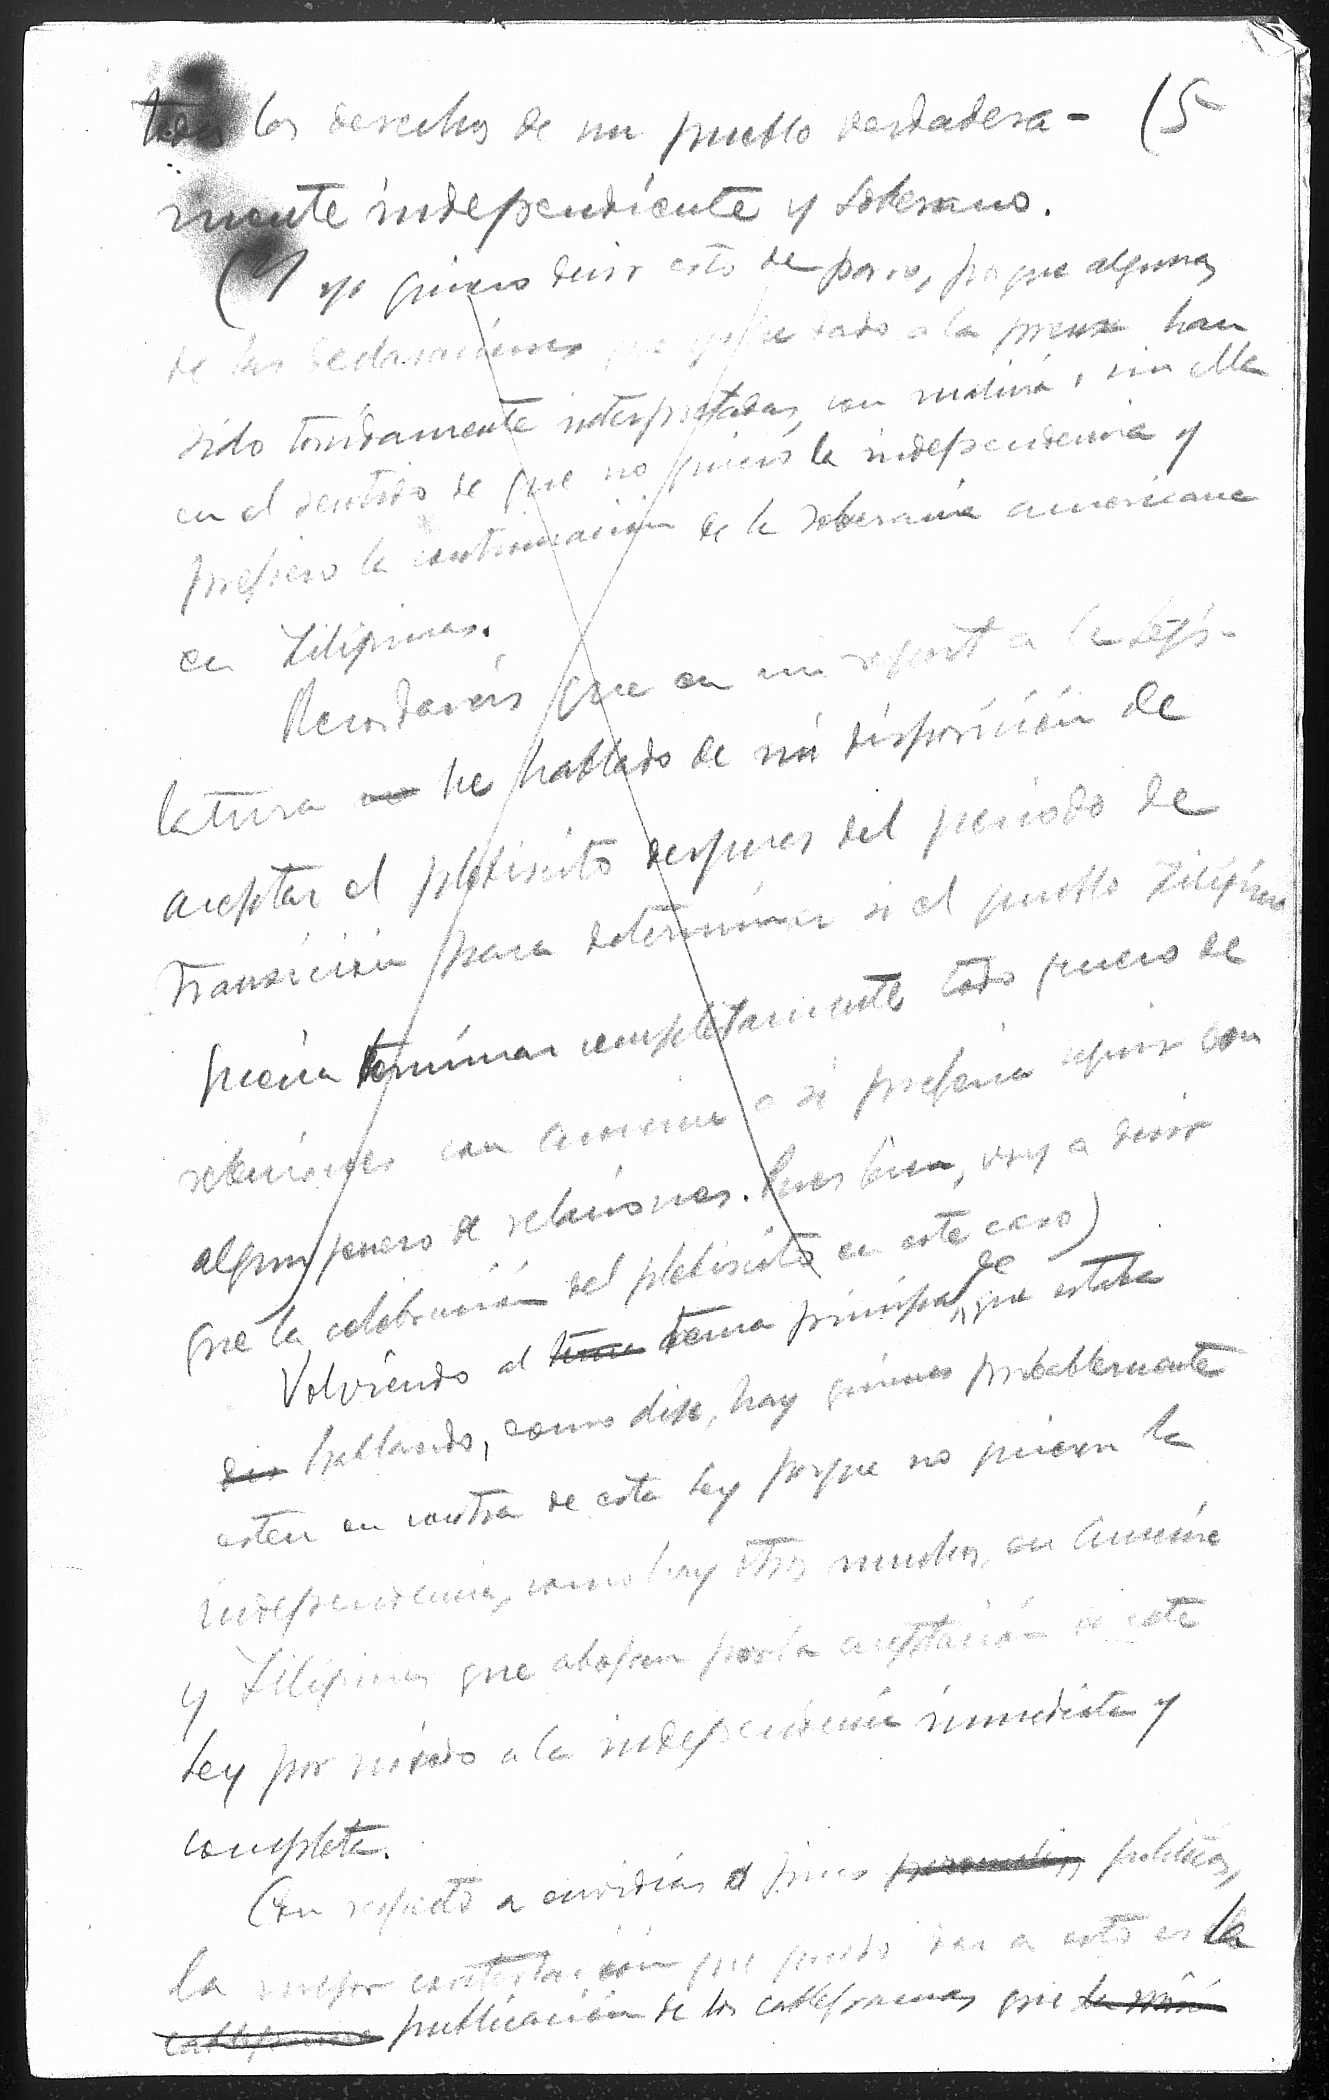 todos los derechos de un pueblo verdadera- (5
mente independiente y soberano.
(Y yo quiero decir esto de paso, porque algunas
de las declaraciones que yo he dado a la prensa han
sido torcidamente interpretadas, con malicia o sin ella
en el sentido de que no quiero la independencia y
prefiero la continuacion de la soberania americana
en Filipinas.
Recordareis que en mi report a la Legis-
latura no he hablado de mi disposición de
aceptar el plebiscito despues del periodo de
transición para determinar si el pueblo Filipino
queria terminar completamente todo genero de
relaciones con America o si preferia seguir con
algun genero de relaciones. Pues bien, voy a decir
que la celebración del plebiscito en este caso)
Volviendo al tema tema principal de que estaba
dis hablando, como dije, hay quienes probablemente
esten en contra de esta ley porque no quieren la
independencia, como hay otros muchos, en America
y Filipinas que abogan por la aceptación de esta
Ley por miedo a la independencia inmediata y
completa.
Con respecto a envidias o fines personales, politicos,
la mejor contestación que puedo dar a esto es la
cablegramas publicación de los cablegramas que la misión